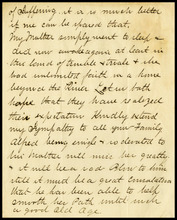 of suffering, it is much better
if one can be spared that.
My Mother simply went to sleep &
did not awaken again at least in
this land of trouble & strife & she
had unlimited faith in a home
beyond the River. Let us both
hope that they have realized
their expectation. Kindly extend
my sympathy to all your Family
Alfred being single & so devoted to
his Mother will miss her greatly
& it will be a sad blow to him
still it must be a great consolation
that he has been able to help
smooth her Path until such
a good old Age